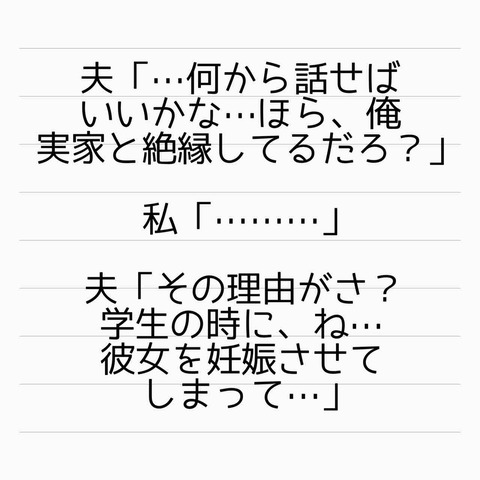 夫「…何から話せば
いいかな…ほら、俺
実家と絶縁してるだろ？」
私「………」
夫「その理由がさ？
学生の時に、ね…
彼女を妊娠させて
しまって…」